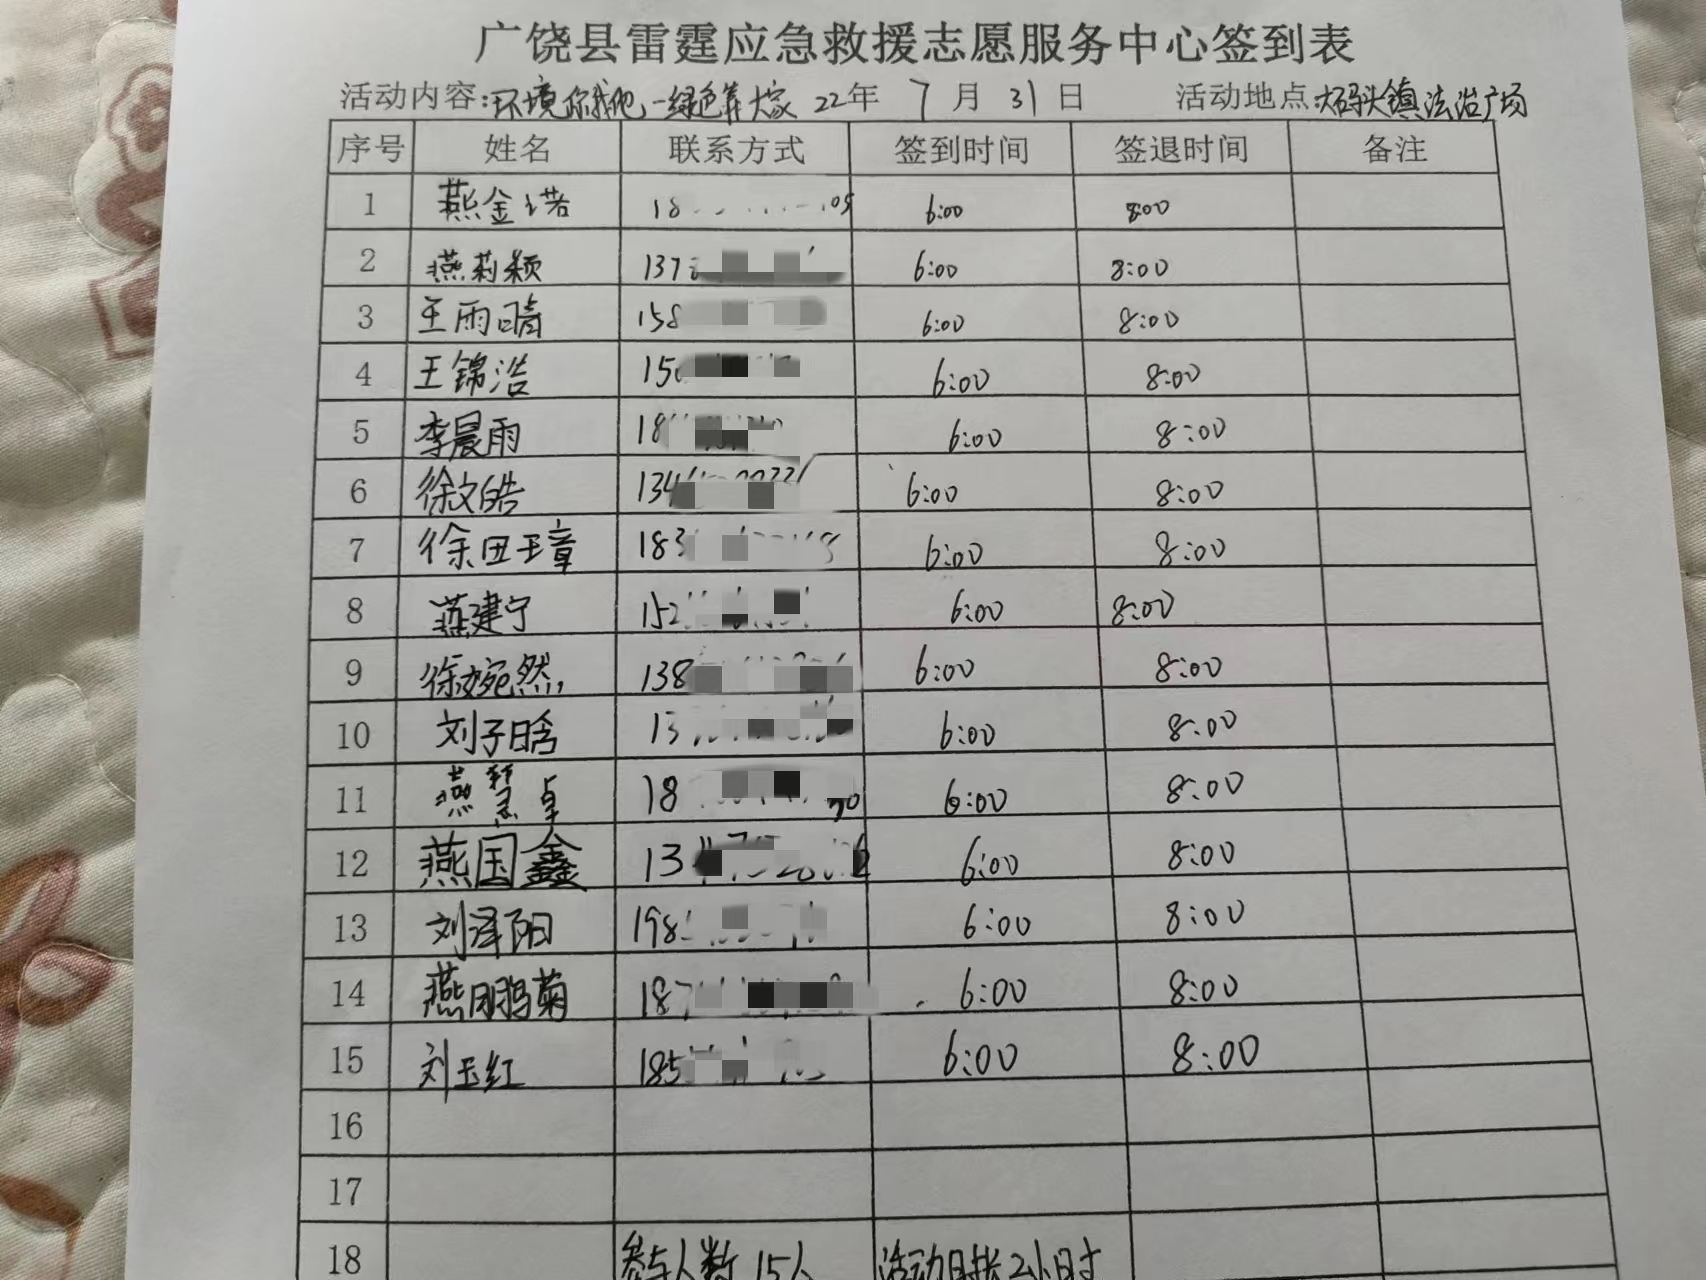 广饶县雷霆应急救援志愿服务中心签到表
活动内容:环境你我他一绿色靠大家 22年 7月 31日 活动地点:大码头镇法治广场
序号 姓名 联系方式 签到时间 签退时间 备注
1 燕金诺 18 05 6:00 8:00
2 燕莉颖 137 6:00 8:00
3 王雨晴 158 6:00 8:00
4 王锦浩 150 6:00 8:00
5 李晨雨 18 6:00 8:00
6 徐文皓 134 6:00 8:00
7 徐田璋 183 6:00 8:00
8 燕建宁 152 6:00 8:00
9 徐婉然 138 6:00 8:00
10 刘子晗 13 6:00 8:00
11 燕慧卓 18 6:00 8:00
12 燕国鑫 13 6:00 8:00
13 刘泽阳 198 6:00 8:00
14 燕鹏菊 187 6:00 8:00
15 刘玉红 185 6:00 8:00
16
17
18 参与人数 15人 活动时长2小时